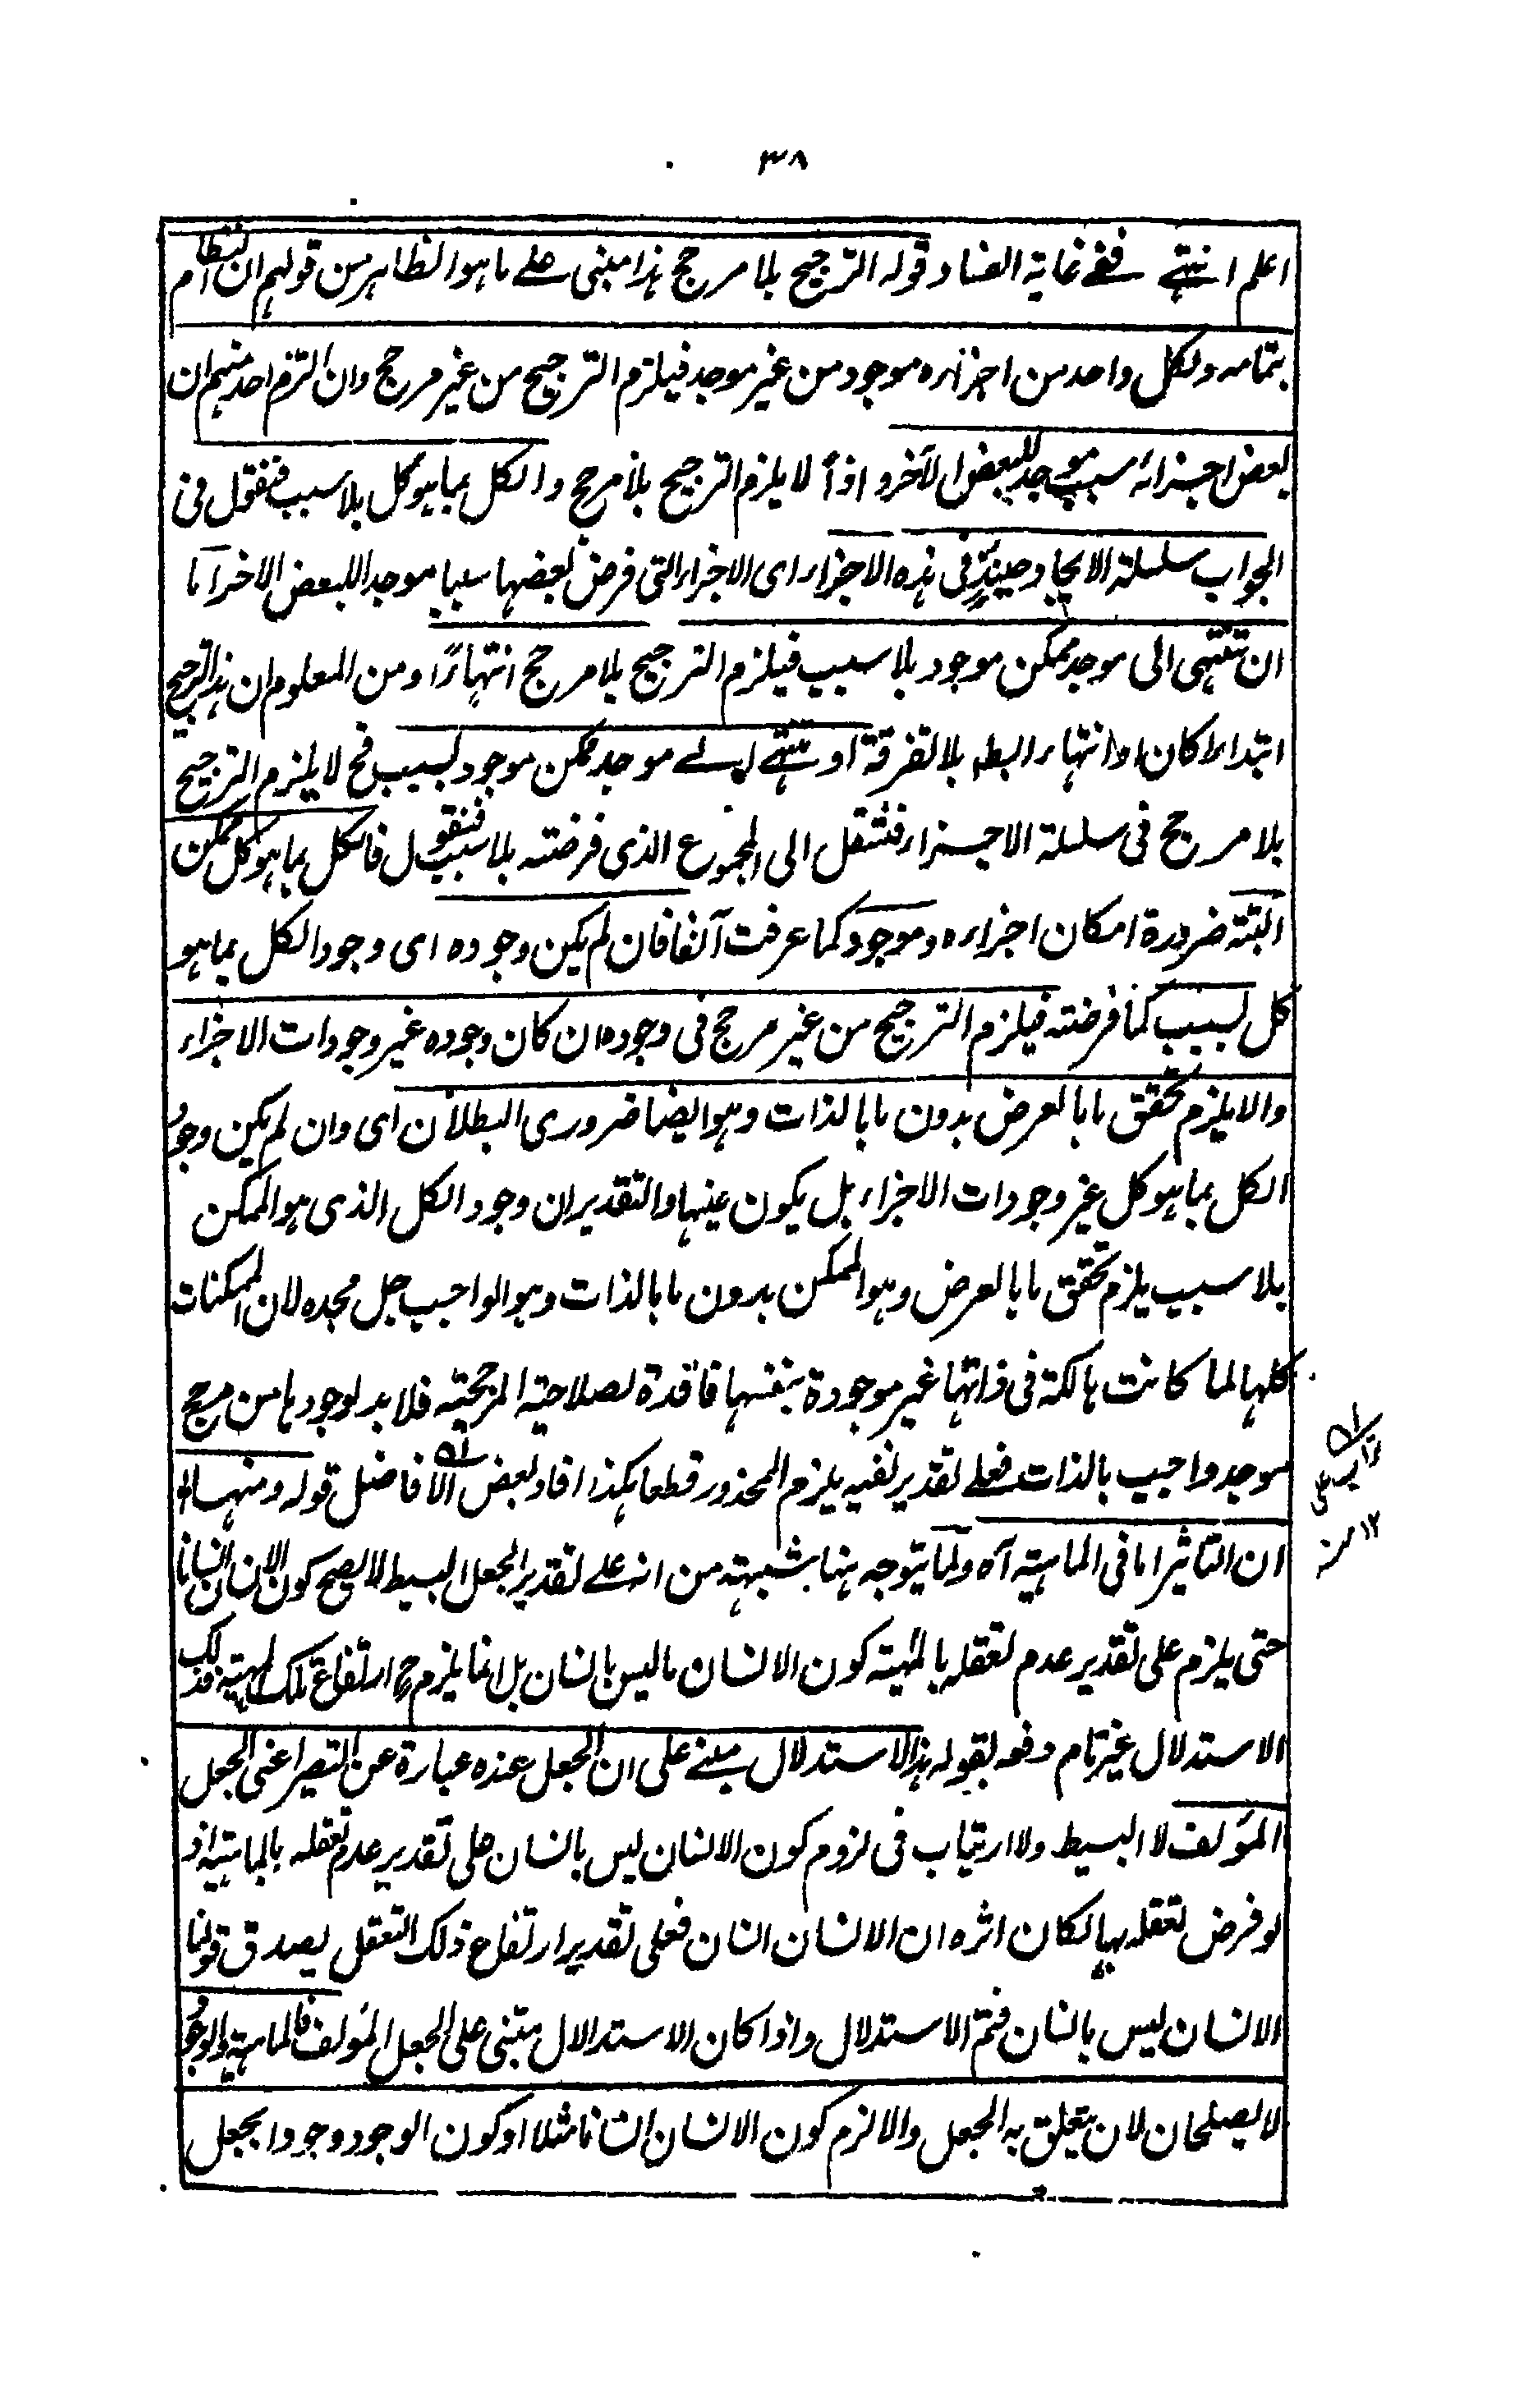 ٣٨
اعلم انتهى ففى غاية الفساد قوله الترجيح بلا مرجح هذا مبنى على ما هو الظاهر من قولهم ان النظام
بتمامه ولكل واحد من اجزائه موجود من غير موجد فيلزم الترجيح من غير مرجح وان التزم احد منهم ان
بعض اجزائه سبب موجد للبعض الآخر واذاً لا يلزم الترجيح بلا مرجح والكل بما هو كل بلا سبب فنقول فى
الجواب سلسلة الايجاد حينئذٍ فى هذه الاجزاء اى الاجزاء التى فرض بعضها سببا موجدا للبعض الاخر اما
ان تنتهى الى موجد ممكن موجود بلا سبب فيلزم الترجيح بلا مرجح انتهاءً ومن المعلوم ان هذا الترجيح
ابتداءا كان او انتهاء ابطه بلا تفرقة او تنتهى الى موجد ممكن موجود بسبب فح لا يلزم الترجيح
بلا مرجح فى سلسلة الاجزاء فننتقل الى المجموع الذى فرضته بلا سبب فنقول فالكل بما هو كل ممكن
البتة ضرورة امكان اجزاءه وموجود كما عرفت آنفا فان لم يكن وجوده اى وجود الكل بما هو
كل بسبب كما فرضته فيلزم الترجيح من غير مرجح فى وجوده ان كان وجوده غير وجودات الاجزاء
والا يلزم تحقق ما بالعرض بدون ما بالذات وهو ايضا ضرورى البطلان اى وان لم يكن وجود
الكل بما هو كل غير وجودات الاجزاء بل يكون عينها والتقدير ان وجود الكل الذى هو الممكن
بلا سبب يلزم تحقق ما بالعرض وهو الممكن بدون ما بالذات وهو الواجب جل مجده لان الممكنات
كلها لما كانت هالكة فى ذاتها غير موجودة بنفسها فاقدة لصلاحية المرجحية فلا بد لوجودها من مرجح
موجد واجب بالذات فعلى تقدير نفيه يلزم المحذور قطعا هكذا افاد بعض الافاضل قوله ومنها
ان التاثير اما فى الماهية آه ولما يتوجه ههنا شبهة من انه على تقدير الجعل البسيط لا يصح كون الانسان انسانا
حتى يلزم على تقدير عدم تعقله بالمهية كون الانسان ما ليس بانسان بل انما يلزم ح ارتفاع تلك المهية فذلك
الاستدلال غير تام دفعه بقوله هذا الاستدلال مبنى على ان الجعل عنده عبارة عن التصير اعنى الجعل
المؤلف لا البسيط ولا ارتياب فى لزوم كون الانسان ليس بانسان على تقدير عدم تعقله بالماهية اذ
لو فرض تعقله بها لكان اثره ان الانسان انسان فعلى تقدير ارتفاع ذلك التعقل يصدق قولنا
الانسان ليس بانسان فتم الاستدلال واذا كان الاستدلال مبتنى على الجعل المؤلف فالماهية والوجود
لا يصلحان لان يتعلق به الجعل والا لزم كون الانسان انسانا مثلا او كون الوجود وجودا بجعل